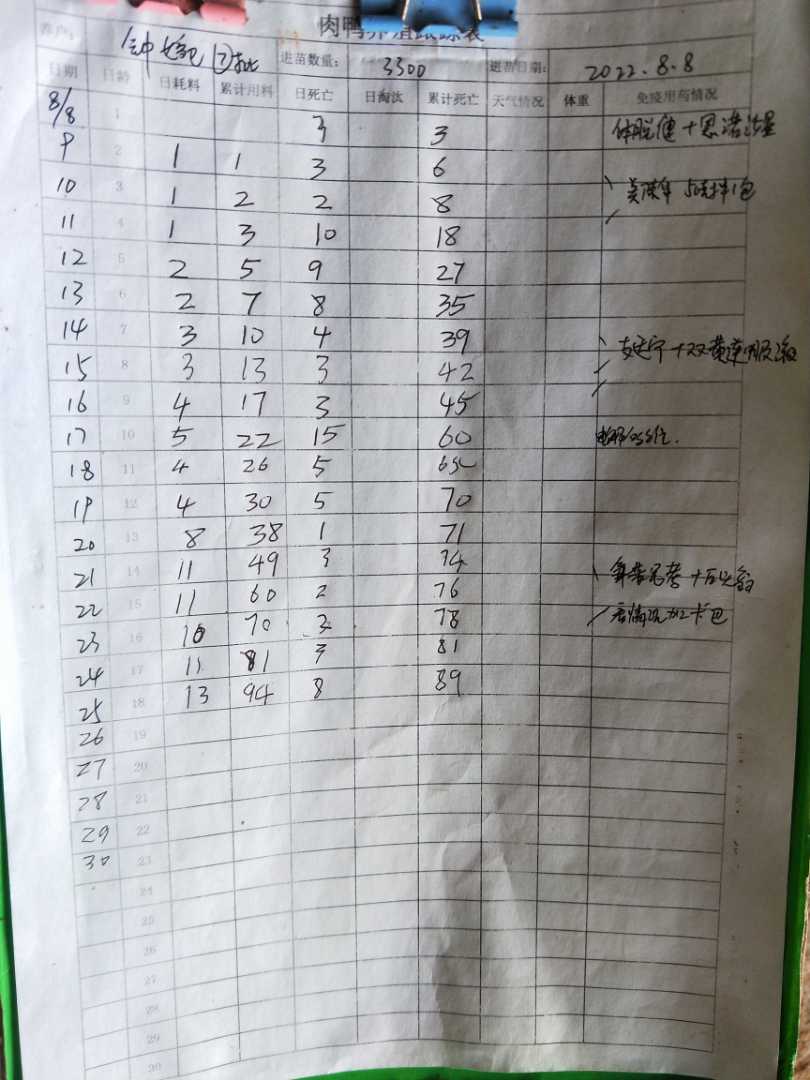 肉鸭养殖跟踪表
养户: 进苗数量: 3300 进苗日期: 2022.8.8
日期 日龄 日耗料 累计用料 日死亡 日淘汰 累计死亡 天气情况 体重 免疫用药情况
8/8 1 3 3
9 2 1 1 3 6
10 3 1 2 2 8
11 4 1 3 10 18
12 5 2 5 9 27
13 6 2 7 8 35
14 7 3 10 4 39
15 8 3 13 3 42
16 9 4 17 3 45
17 10 5 22 15 60
18 11 4 26 5 65
19 12 4 30 5 70
20 13 8 38 1 71
21 14 11 49 3 74
22 15 11 60 2 76
23 16 10 70 3 78
24 17 11 81 3 81
25 18 13 94 8 89
26 19
27 20
28 21
29 22
30 23
24
25
26
27
28
29
30